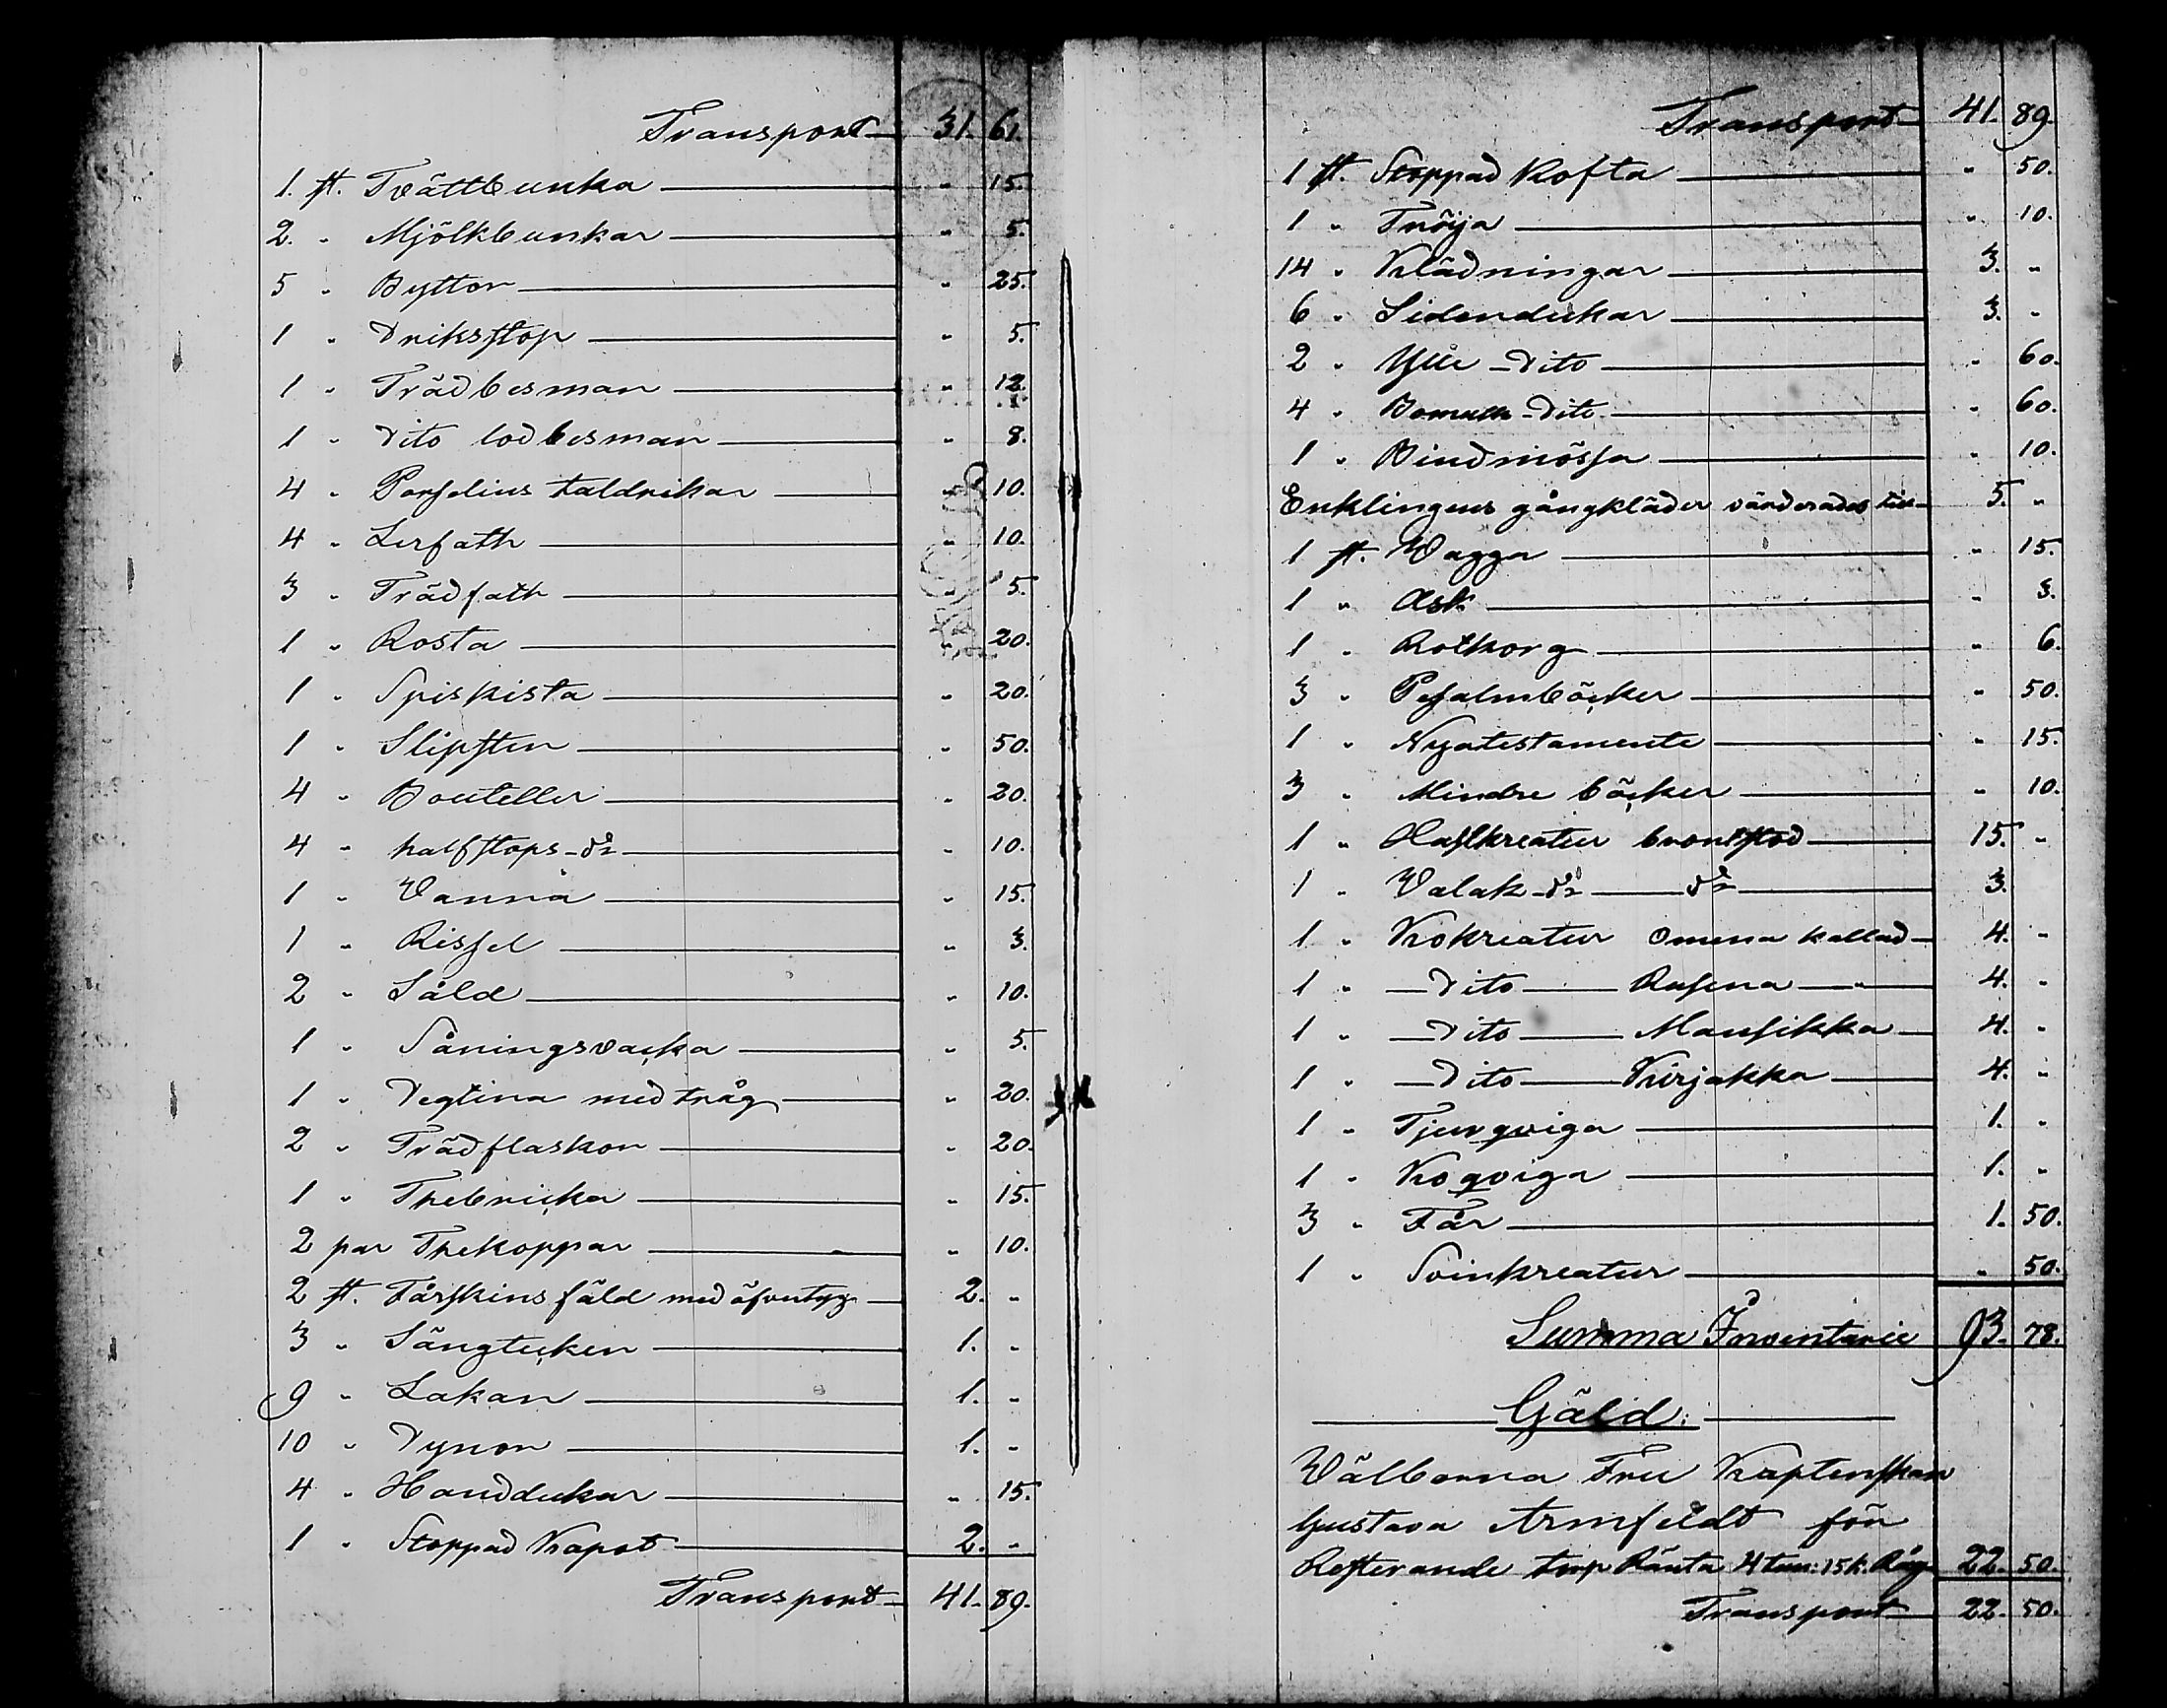 Transport 31. 61.
1. st. Tvättbunka " 15.
2. " Mjölkbunkar " 5.
5 " Byttor " 25.
1 " Driksstop " 5.
1 " Trädbesman " 12.
1 " Dito lodbesman " 8.
4 " Porselins taldrikar " 10.
4 " Lerfath " 10.
3 " Trädfath " 5.
1 " Rosta " 20.
1 " Spiskista " 20.
1 " Slipsten " 50.
4 " Bouteller " 20.
4 " halfstops-do " 10.
1 " Wanna " 15.
1 " Rissel " 3.
2 " Såld " 10.
1 " Såningsvacka " 5.
1 " Degtina med tråg " 20.
2 " Trädflaskor " 20.
1 " Thebricka " 15.
2 par Thekoppar " 10.
2 st. Fårskins fäld med öfvertyg 2. "
3 " Sängtäcken 1. "
9 " Lakan 1. "
10 " Dynor 1. "
4 " Handdukar " 15.
1 " Stoppad Kapot 2. "
Transport 41. 89.
Transport 41. 89.
1 st. Stoppad Kofta " 50.
1 " Tröija " 10.
14 " Klädningar 3. "
6 " Sidendukar 3. "
2 " Ylle Dito " 60.
4 " Bomulls Dito " 60.
1 " Bindmössa " 10.
Enklingens gångkläder värderades till 5. "
1 st. Wagga " 15.
1 " Ask " 3.
1 " Rotkorg " 6.
3 " Psalmböcker " 50.
1 " Nyatestamente " 15.
3 " Mindre böcker " 10.
1 " Hästkreatur bronstod 15. "
1 " Walak do do 3.
1 " Kokreatur Omena kallad 4. "
1 " Dito Rusena " 4. "
1 " Dito Mansikka 4. "
1 " Dito Kirjakka 4. "
1 " Tjurqviga 1. "
1 " Koqviga 1. "
3 " Får 1. 50.
1 " Svinkreatur " 50.
Summa Inventarie 93. 78.
Gäld:
Wälborna Fru Kaptenskan
Gustava Armfeldt för
Resterande torp Ränta 4 tun: 15 k. Råg 22. 50.
Transport 22. 50.